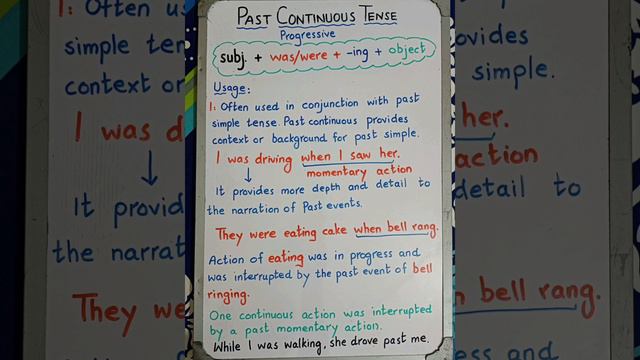 PAST CONTINUOUS TENSE
Progressive
subj. + was/were + -ing + object
Usage:
1: Often used in conjunction with past
simple tense. Past continuous provides
context or background for past simple.
I was driving when I saw her.
momentary action
It provides more depth and detail to
the narration of Past events.
They were eating cake when bell rang.
Action of eating was in progress and
was interrupted by the past event of bell
ringing.
One continuous action was interrupted
by a past momentary action.
While I was walking, she drove past me.
1: Often u
simple ten
context or
I was d
It provid
the narrat
They we
ovides
simple.
her.
action
detail to
bell rang.
ess and